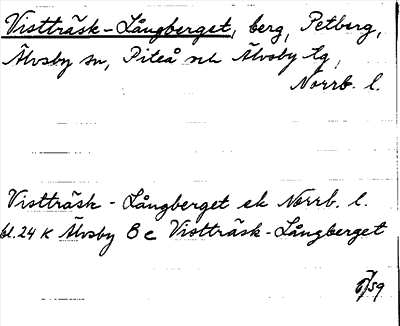 Vistträsk-Långberget, berg, Petberg,
Älvsby sn, Piteå och Älvsby tg,
Norrb. l.
Vistträsk - Långberget ek Norrb. l.
bl. 24 K Älvsby 8 c Vistträsk-Långberget